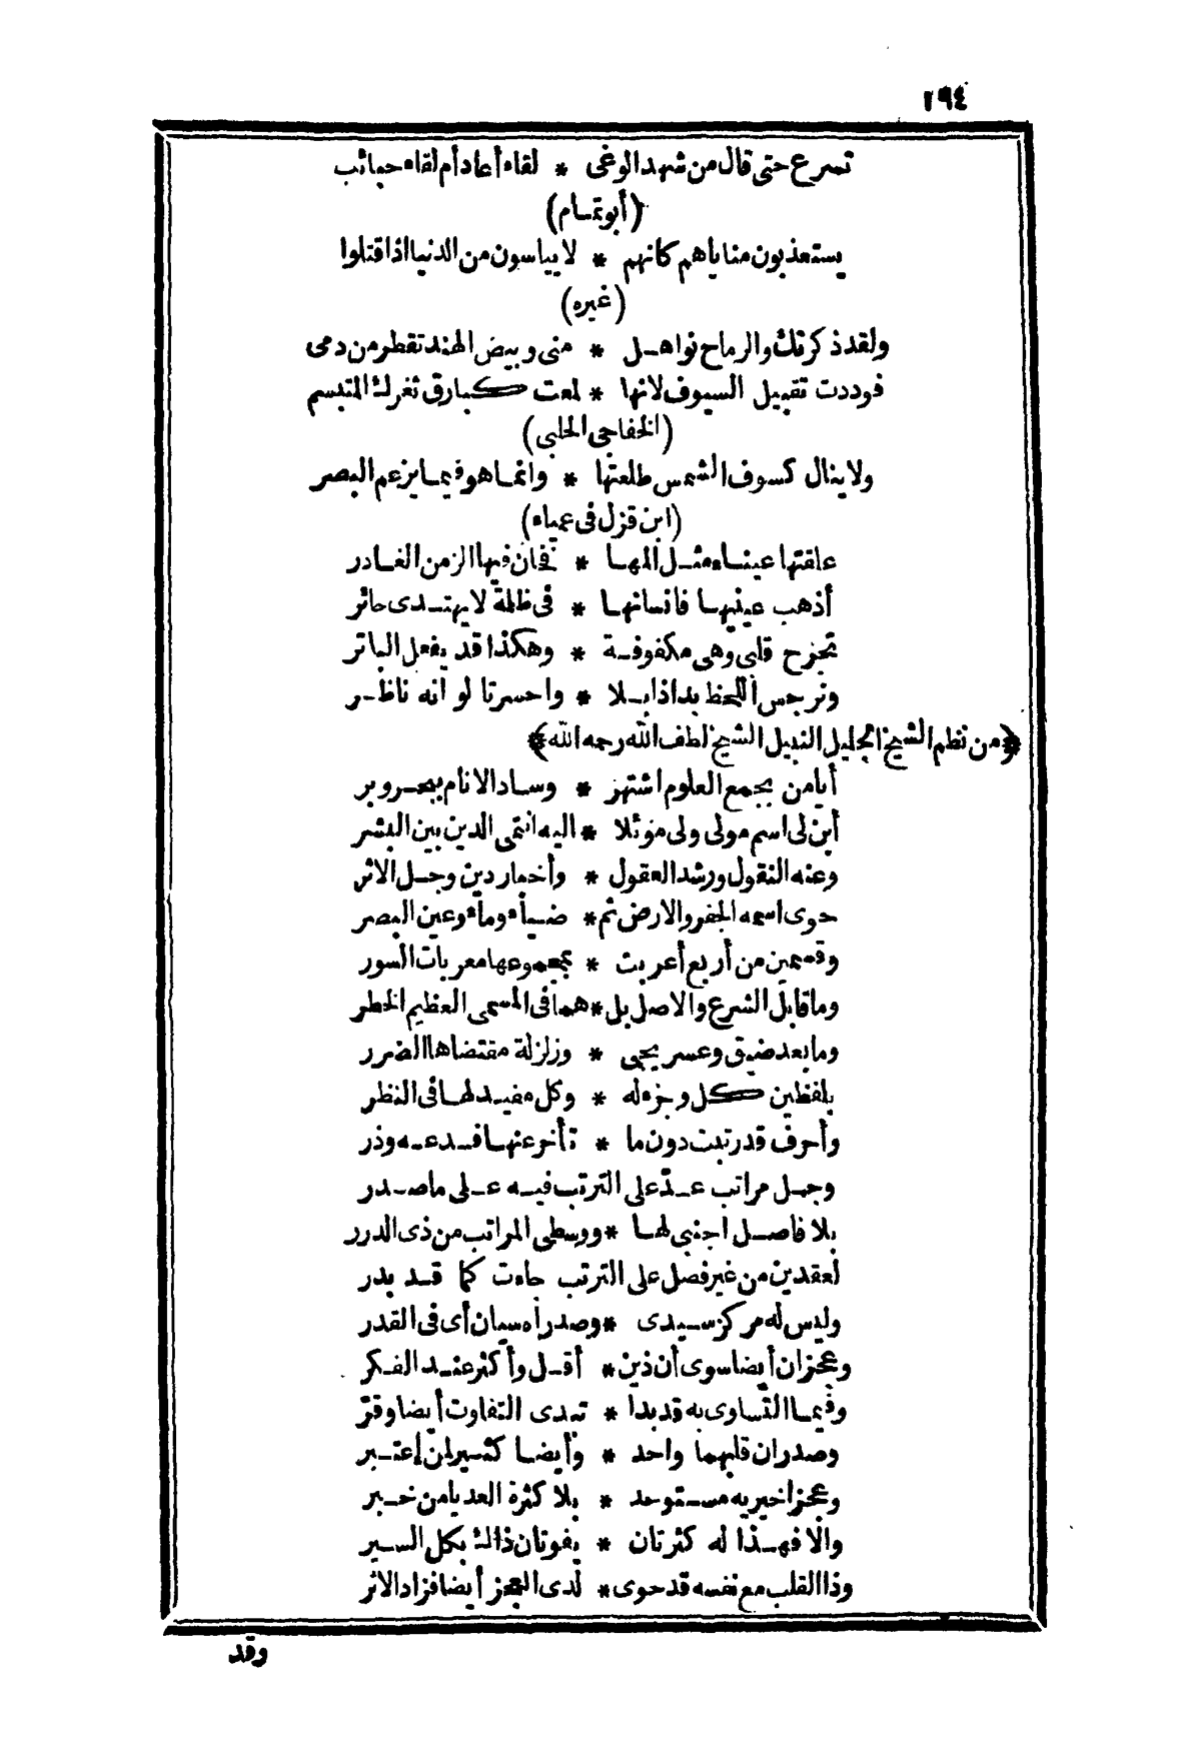 ٢٩٤
تسرع حتى قال من شهد الوغى * لقاء أعاد أم لقاء حبائب
(أبو تمام)
يستعذبون مناياهم كانهم * لا يياسون من الدنيا اذا قتلوا
(غيره)
ولقد ذكرتك والرماح نواهل * منى وبيض الهند تقطر من دمى
فوددت تقبيل السيوف لانها * لمعت كبارق ثغرك المتبسم
(الخفاجى الحلبى)
ولا ينال كسوف الشمس طلعتها * وانما هو فيما يزعم البصر
(ابن قزل فى عمياء)
علقتها عيناء مثل المها * فخان فيها الزمن الغادر
أذهب عينيها فانسانها * فى ظلمة لا يهتدى حائر
تجرح قلبى وهى مكفوفة * وهكذا قد يفعل الباتر
ونرجس اللحظ بدا ذابلا * واحسرتا لو انه ناظر
﴿ومن نظم الشيخ الجليل النبيل الشيخ لطف الله رحمه الله﴾
أيا من بجمع العلوم اشتهر * وساد الانام ببحر وبر
أبن لى اسم مولى ولى موئلا * اليه انتمى الدين بين البشر
وعنه النقول ورشد العقول * وأخبار دين وجل الاثر
حوى اسمه الجفر والارض ثم * ضياء وماء وعين البصر
وقسمين من أربع أعربت * بمجموعها معربات السور
وما قابل الشرع والاصل بل * هما فى المسمى العظيم الخطر
وما بعد ضيق وعسر يجى * وزلزلة مقتضاها الضرر
بلفظين كل وجزء له * وكل مفيد لها فى النظر
وأحرف قد رتبت دون ما * تأخر عنها فدعه وذر
وجمل مراتب عد على الترتب فيه على ما صدر
بلا فاصل اجنبى لها * ووسطى المراتب من ذى الدرر
لعقدين من غير فصل على الترتب جاءت كما قد بدر
وليس له مركز سيدى * وصدراه سيان أى فى القدر
وعجزان أيضا سوى أن ذين * أقل وأكثر عند الفكر
وفيما التساوى به قد بدا * تبدى التفاوت أيضا وقر
وصدران قلبهما واحد * وأيضا كثير لمن إعتبر
وعجز اخير به مستوحد * بلا كثرة العد يا من خبر
والا فهذا له كثرتان * يفوتان ذاك بكل السير
وذا القلب مع نفسه قد حوى * لدى العجز أيضا فزاد الاثر
وقد